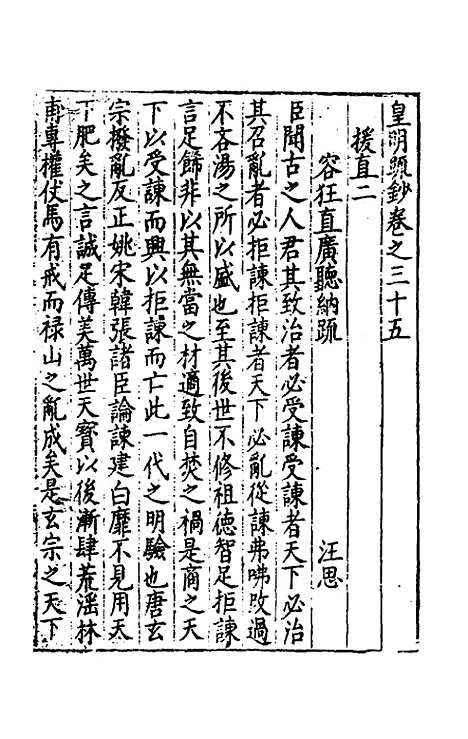 皇明疏鈔卷之三十五
援直二
容狂直廣聽納疏
汪思
臣聞古之人君其致治者必受諫受諫者天下必治
其召亂者必拒諫拒諫者天下必亂從諫弗咈改過
不吝湯之所以盛也至其後世不修祖德智足拒諫
言足餙非以其無當之材適致自焚之禍是商之天
下以受諫而興以拒諫而亡此一代之明驗也唐玄
宗撥亂反正姚宋韓張諸臣論諫建白靡不見用天
下肥矣之言誠足傳美萬世天寳以後漸肆荒滛林
甫專權仗馬有戒而禄山之亂成矣是玄宗之天下